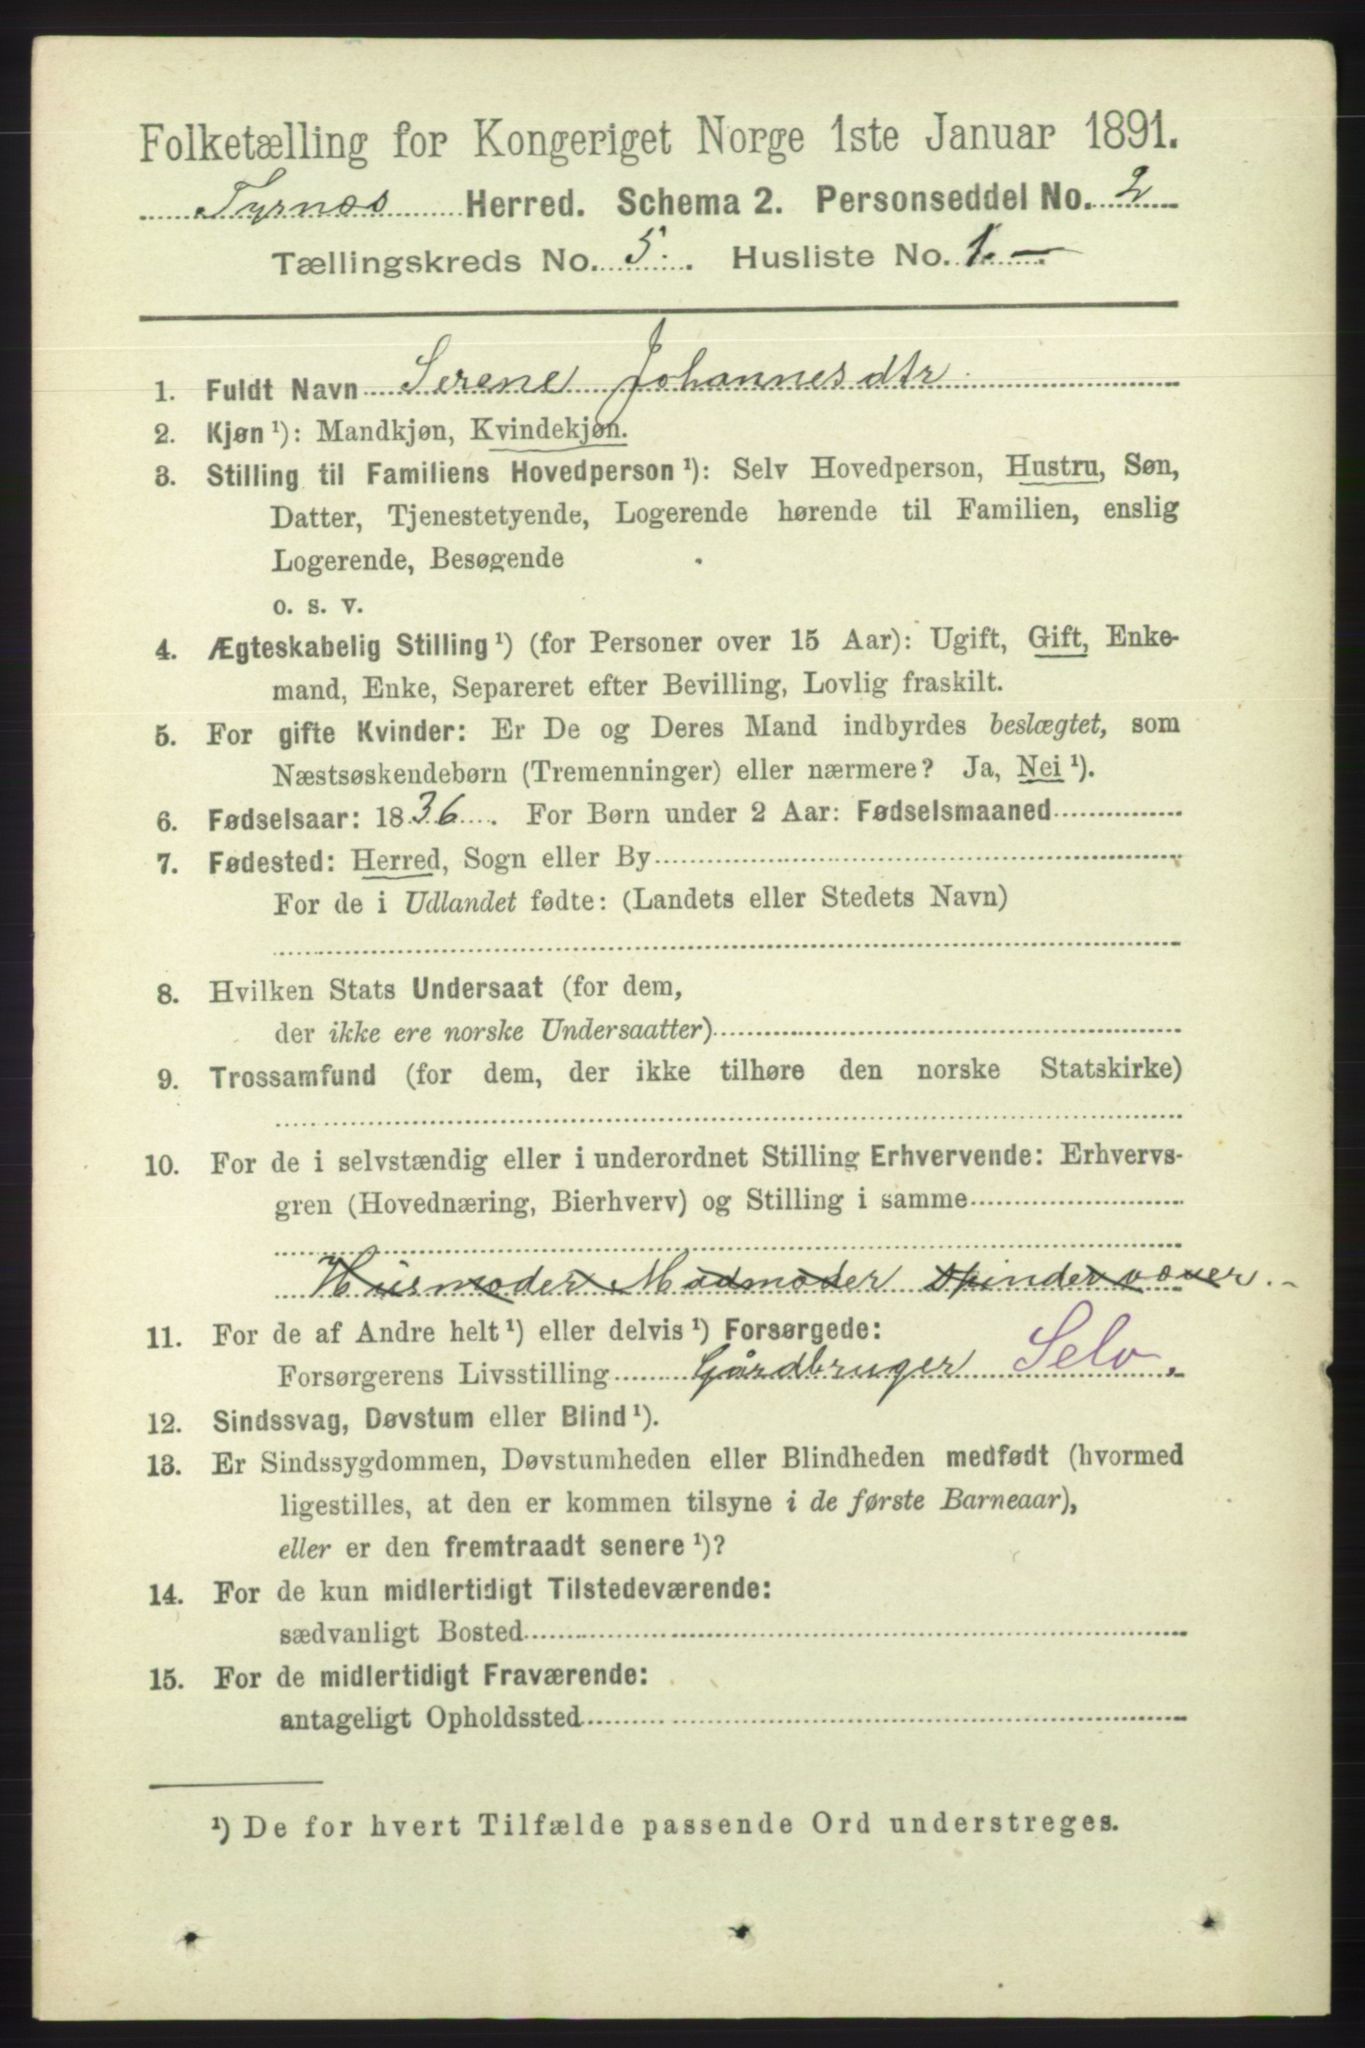 Folketælling for Kongeriget Norge 1ste Januar 1891.
Tyrnæs Herred. Schema 2. Personseddel No. 2
Tællingskreds No. 5. Husliste No. 1.—
1. Fuldt Navn Serene Johannesdtr
2. Kjøn¹): Mandkjøn, Kvindekjøn.
3. Stilling til Familiens Hovedperson¹): Selv Hovedperson, Hustru, Søn,
Datter, Tjenestetyende, Logerende hørende til Familien, enslig
Logerende, Besøgende
o. s. v.
4. Ægteskabelig Stilling¹) (for Personer over 15 Aar): Ugift, Gift, Enke-
mand, Enke, Separeret efter Bevilling, Lovlig fraskilt.
5. For gifte Kvinder: Er De og Deres Mand indbyrdes beslægtet, som
Næstsøskendebørn (Tremenninger) eller nærmere? Ja, Nei¹).
6. Fødselsaar: 1836. For Børn under 2 Aar: Fødselsmaaned
7. Fødested: Herred, Sogn eller By
For de i Udlandet fødte: (Landets eller Stedets Navn)
8. Hvilken Stats Undersaat (for dem,
der ikke ere norske Undersaatter)
9. Trossamfund (for dem, der ikke tilhøre den norske Statskirke)
10. For de i selvstændig eller i underordnet Stilling Erhvervende: Erhvervs-
gren (Hovednæring, Bierhverv) og Stilling i samme
Husmoder Madmoder spinder væver.-
11. For de af Andre helt¹) eller delvis¹) Forsørgede:
Forsørgerens Livsstilling Gårdbruger Selv.
12. Sindssvag, Døvstum eller Blind¹).
13. Er Sindssygdommen, Døvstumheden eller Blindheden medfødt (hvormed
ligestilles, at den er kommen tilsyne i de første Barneaar),
eller er den fremtraadt senere¹)?
14. For de kun midlertidigt Tilstedeværende:
sædvanligt Bosted
15. For de midlertidigt Fraværende:
antageligt Opholdssted
¹) De for hvert Tilfælde passende Ord understreges.